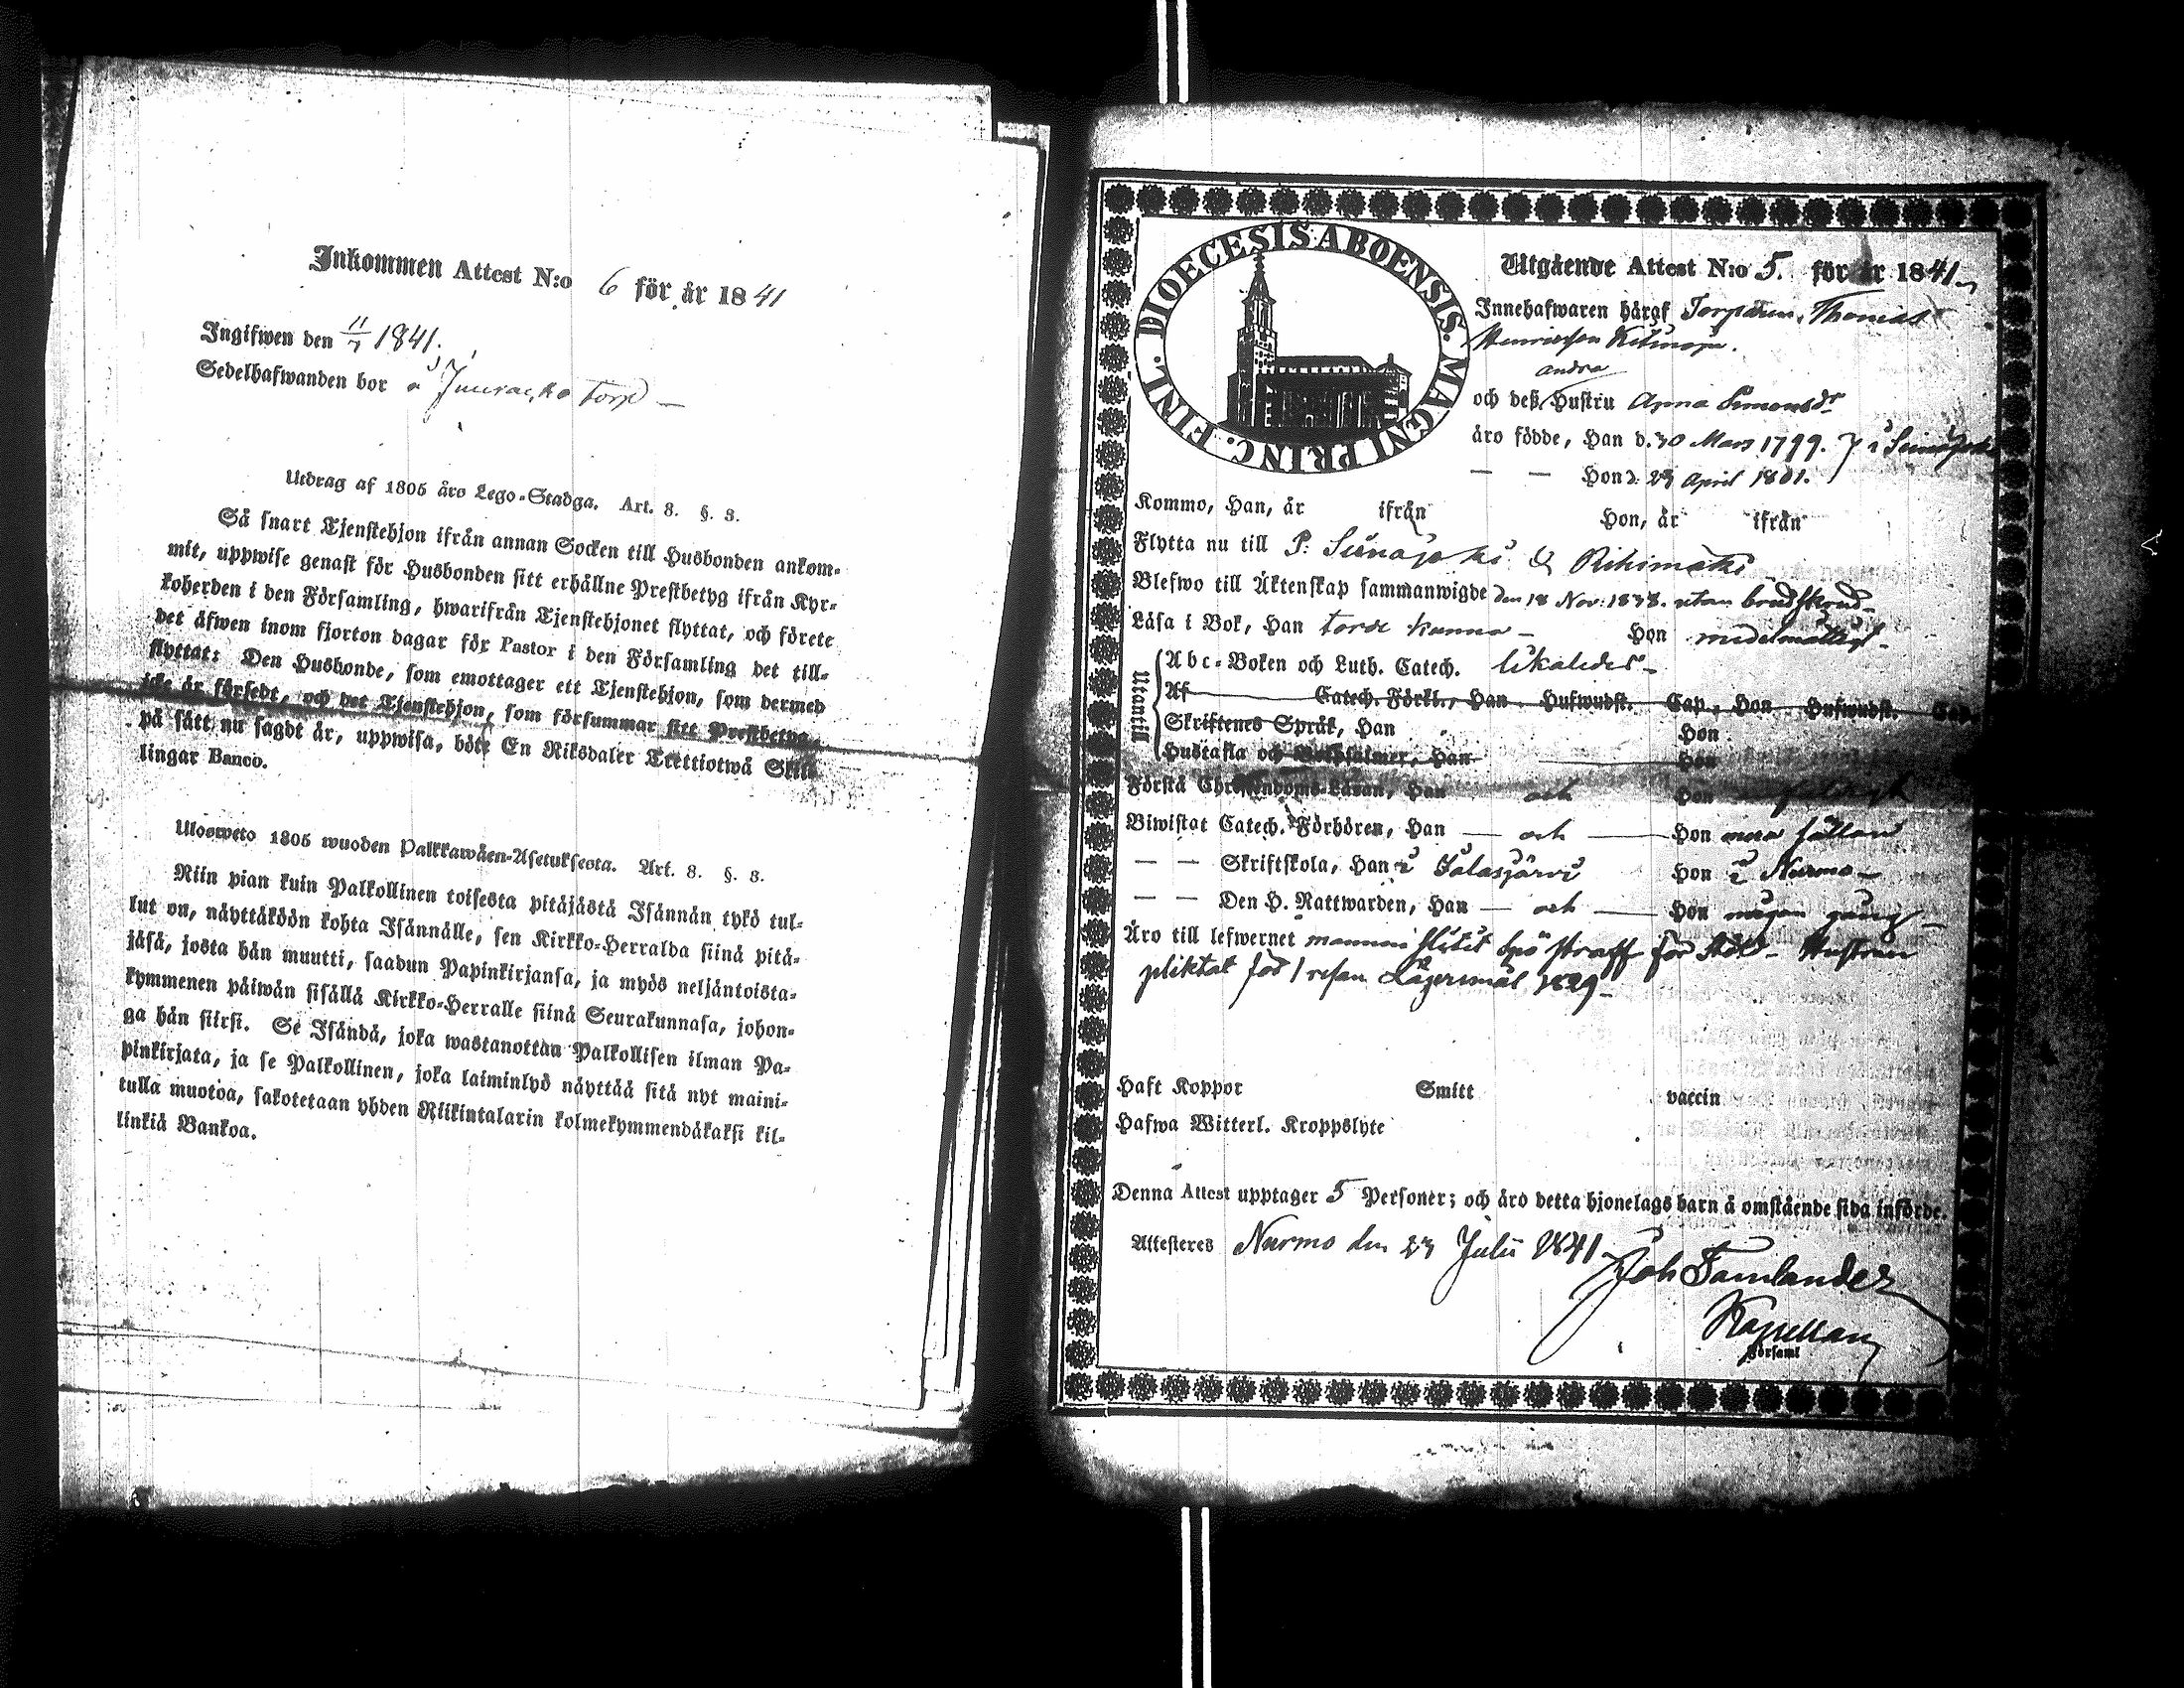 Inkommen Attest N:o 6 för år 1841
Ingifwen den 11/7 1841.
Sedelhafwanden bor å torp
Utdrag af 1805 års Lego-Stadga. Art. 8. §. 3.
Så snart Tjenstehjon ifrån annan Socken till Husbonden ankom-
mit, uppwise genast för Husbonden sitt erhållne Prestbetyg ifrån Kyr-
koherden i den Församling, hwarifrån Tjenstehjonet flyttat, och förete
det äfwen inom fjorton dagar för Pastor i den Församling det till-
flyttat: Den Husbonde, som emottager ett Tjenstehjon, som dermed
icke är försedt, och det Tjenstehjon, som försummar sitt Prestbetyg,
på sätt nu sagdt är, uppwisa, böte En Riksdaler Trettiotwå Skil-
lingar Banco.
Ulosweto 1805 wuoden Palkkawäen-Asetuksesta. Art. 8. §. 3.
Niin pian kuin Palkollinen toisesta pitäjästä Isännän tykö tul-
lut on, näyttäköön kohta Isännälle, sen Kirkko-Herralda siinä pitä-
jäsä, josta hän muutti, saadun Papinkirjansa, ja myös neljäntoista-
kymmenen päiwän sisällä Kirkko-Herralle siinä Seurakunnasa, johon-
ga hän siirsi. Se Isändä, joka wastanottaa Palkollisen ilman Pa-
pinkirjata, ja se Palkollinen, joka laiminlyö näyttää sitä nyt maini-
tulla muotoa, sakotetaan yhden Riikintalarin kolmekymmendäkaksi kil-
linkiä Bankoa.
DIOECESIS ABOENSIS. MAGNI PRINC. FINL.
Utgående Attest N:o 5. för år 1841
Innehafwaren härgf Torparen Thomas
Henricsson
andra
och deß Hustru Anna Simonsdr
äro födde, Han d. 30 Mars 1799. i
— — Hon d. 23 April 1801.
Kommo, Han, år ifrån Hon, år ifrån
Flytta nu till P.
Blefwo till Äktenskap sammanwigde den 18 Nov: 1838. utan brudskrud
Läsa i Bok, Han torde kunna — Hon medelmåttigt
Utantill
Abc-Boken och Luth. Catech. likaledes
Af Catech. Förkl., Han Hufwudst. Cap., Hon Hufwudst. Cap.
Skriftenes Språk, Han Hon
Hustafla och Botpsalmer, Han Hon
Förstå Christendoms-Läran, Han och Hon
Biwistat Catech. Förhören, Han — och — Hon mera sällan
— — Skriftskola, Han i Jalasjärvi Hon i Nurmo —
— — Den H. Nattwarden, Han — och — Hon någon gång
Äro till lefwernet mannen slitit spö straff för stöld — Hustrun
pliktat för 1 resan Lägersmål 1829 —
Haft Koppor Smitt vaccin
Hafwa Witterl. Kroppslyte
Denna Attest upptager 5 Personer; och äro detta hjonelags barn å omstående sida införde.
Attesteres Nurmo den 23 Julii 1841
Joh Tamlander
Kapellan
Församl